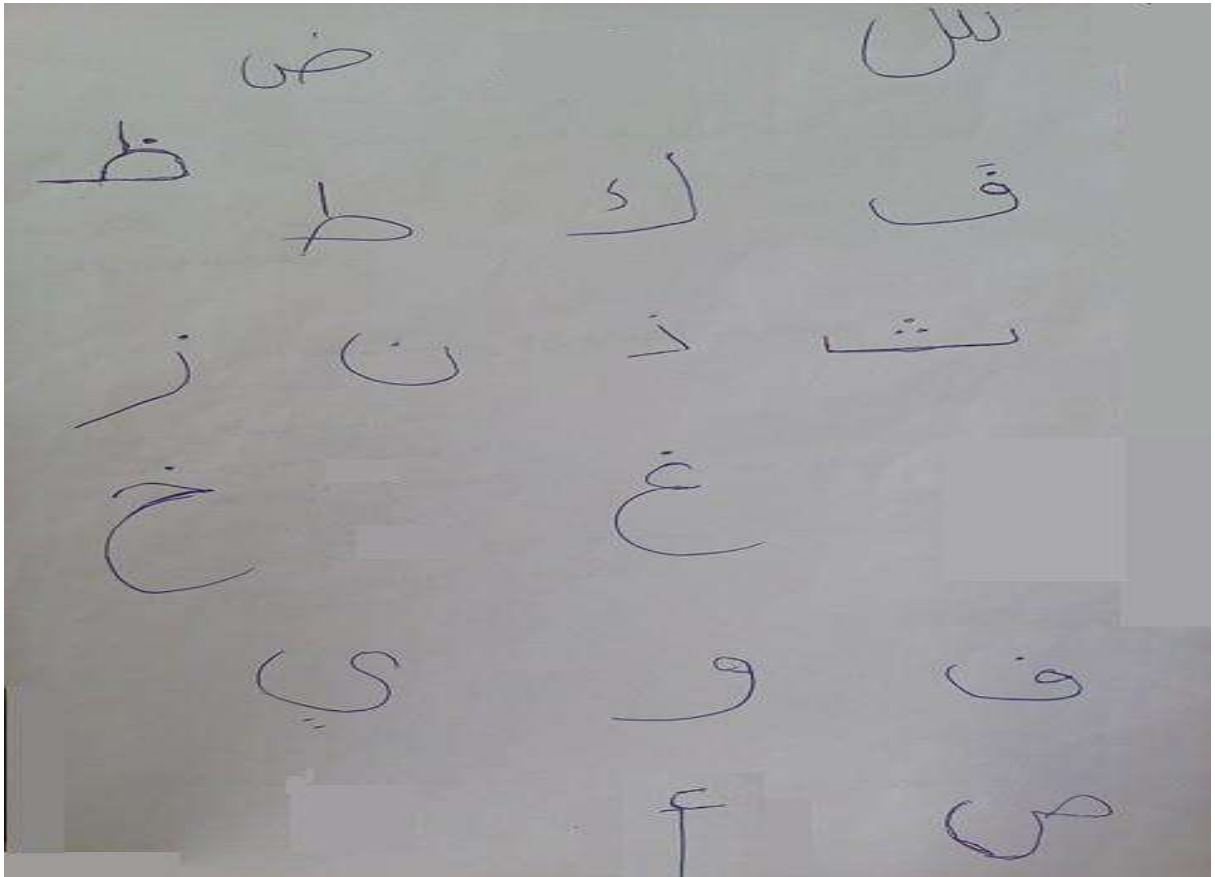 س ض
ق ك ط ظ
ث ذ ن ز
غ خ
ف و ي
ص أ